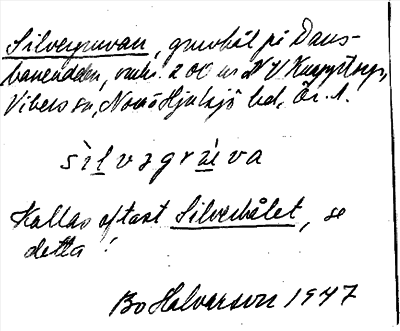 Silvergruvan, gruvhål på Dans-
banendden, omkr. 200 m NV Knapptorp,
Vibers sn, Nora o Hjulsjö bd, Ör. l.
silvərgrùva
Kallas oftast Silverhålet, se
detta!
Bo Halvarson 1947